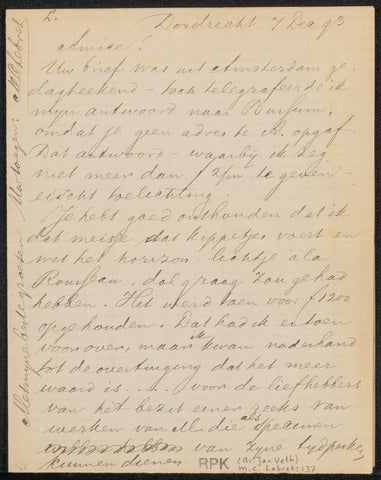 2.
Dordrecht 7 Dec 93
Amice!
Uw brief was uit Amsterdam ge-
dagteekend – toch telegrafeerde ik
mijn antwoord naar Bussum,
omdat je geen adres te A. opgaf.
Dat antwoord – waarby ik zeg
niet meer dan f 2/m te geven –
eischt toelichting
Je hebt goed onthouden dat ik
dat meisje dat kippetjes voert en
met het horizon-lichtje à la
Rousseau, dol graag zou gehad
hebben. Het werd toen voor f 1200
opgehouden. Dat had ik er toen
voor over, maar ik kwam naderhand
tot de overtuiging dat het meer
waard is .... voor de liefhebbers
van het bezit eener reeks van
werken van M. die als specimen
van zyne tydperken
kunnen dienen
Met myne beste groeten Uw toegen: M C Lebret
RPK
(Br. Jan Veth)
M.C. Lebret: 137